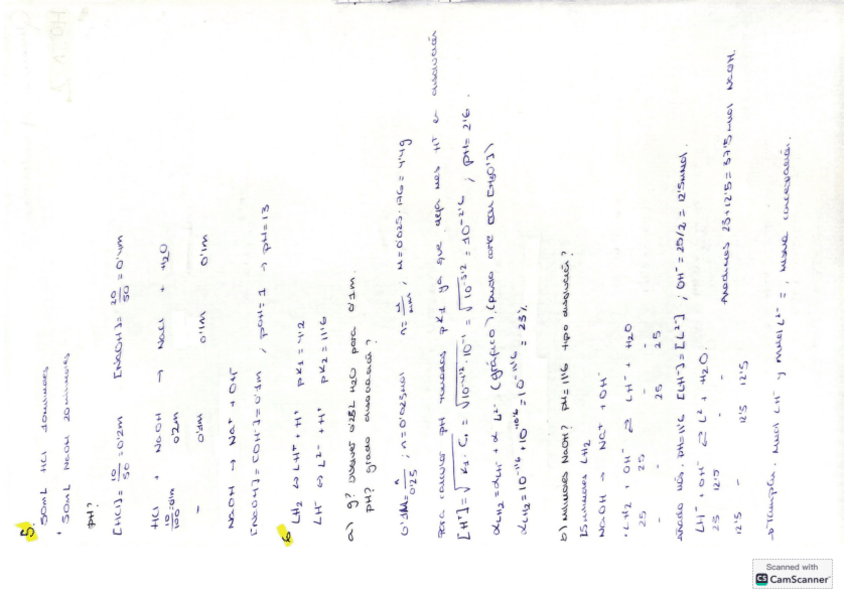 5.
50mL HCl 10mmoles
50mL NaOH 20mmoles
pH?
[HCl] = 10/50 = 0'2M [NaOH] = 20/50 = 0'4M
HCl + NaOH → NaCl + H2O
10/100 = 0'1M 0'2M
- 0'1M 0'1M 0'1M
NaOH → Na+ + OH-
[NaOH] = [OH-] = 0'1M , pOH = 1 → pH = 13
6 LH2 ⇔ LH- + H+ pK1 = 4'2
LH- ⇔ L2- + H+ pK2 = 11'6
a) g? 0'25L H2O para 0'1M.
pH? grado disociación?
0'1M = n/0'25 ; n = 0'025mol n = M/MM ; M = 0'025·176 = 4'4g
Para calcular pH pK1 ya que deja más H+ en disolución
[H+] = √K1·C1 = √10-4'2·10-1 = √10-5'2 = 10-2'6 ; pH = 2'6.
αLH2 = αLH- + α L2- (gráfico), (punto corte con [H3O+])
αLH2 = 10-11'6 + 10-10'6 = 10-11'6 = 25%
b) mmoles NaOH? pH = 11'6 tipo disolución?
25mmoles LH2
NaOH → Na+ + OH-
·LH2 + OH- ⇄ LH- + H2O
25 25 - -
- - 25 25
Añado más, pH=11'6 [LH-] = [L2-] ; OH- = 25/2 = 12'5mmol.
LH- + OH- ⇄ L2- + H2O.
25 12'5 - -
12'5 - 12'5 12'5 Añadimos 25+12'5 = 37'5 mmol NaOH.
→ Tampón. mmol LH- y mmol L2- =, misma concentración.
Scanned with
CS CamScanner